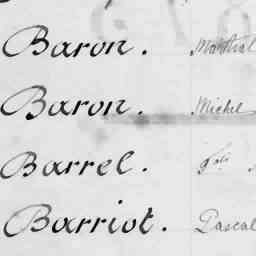 Baron. Martial
Baron. Michel
Barrel. fois
Barriot. Pascal